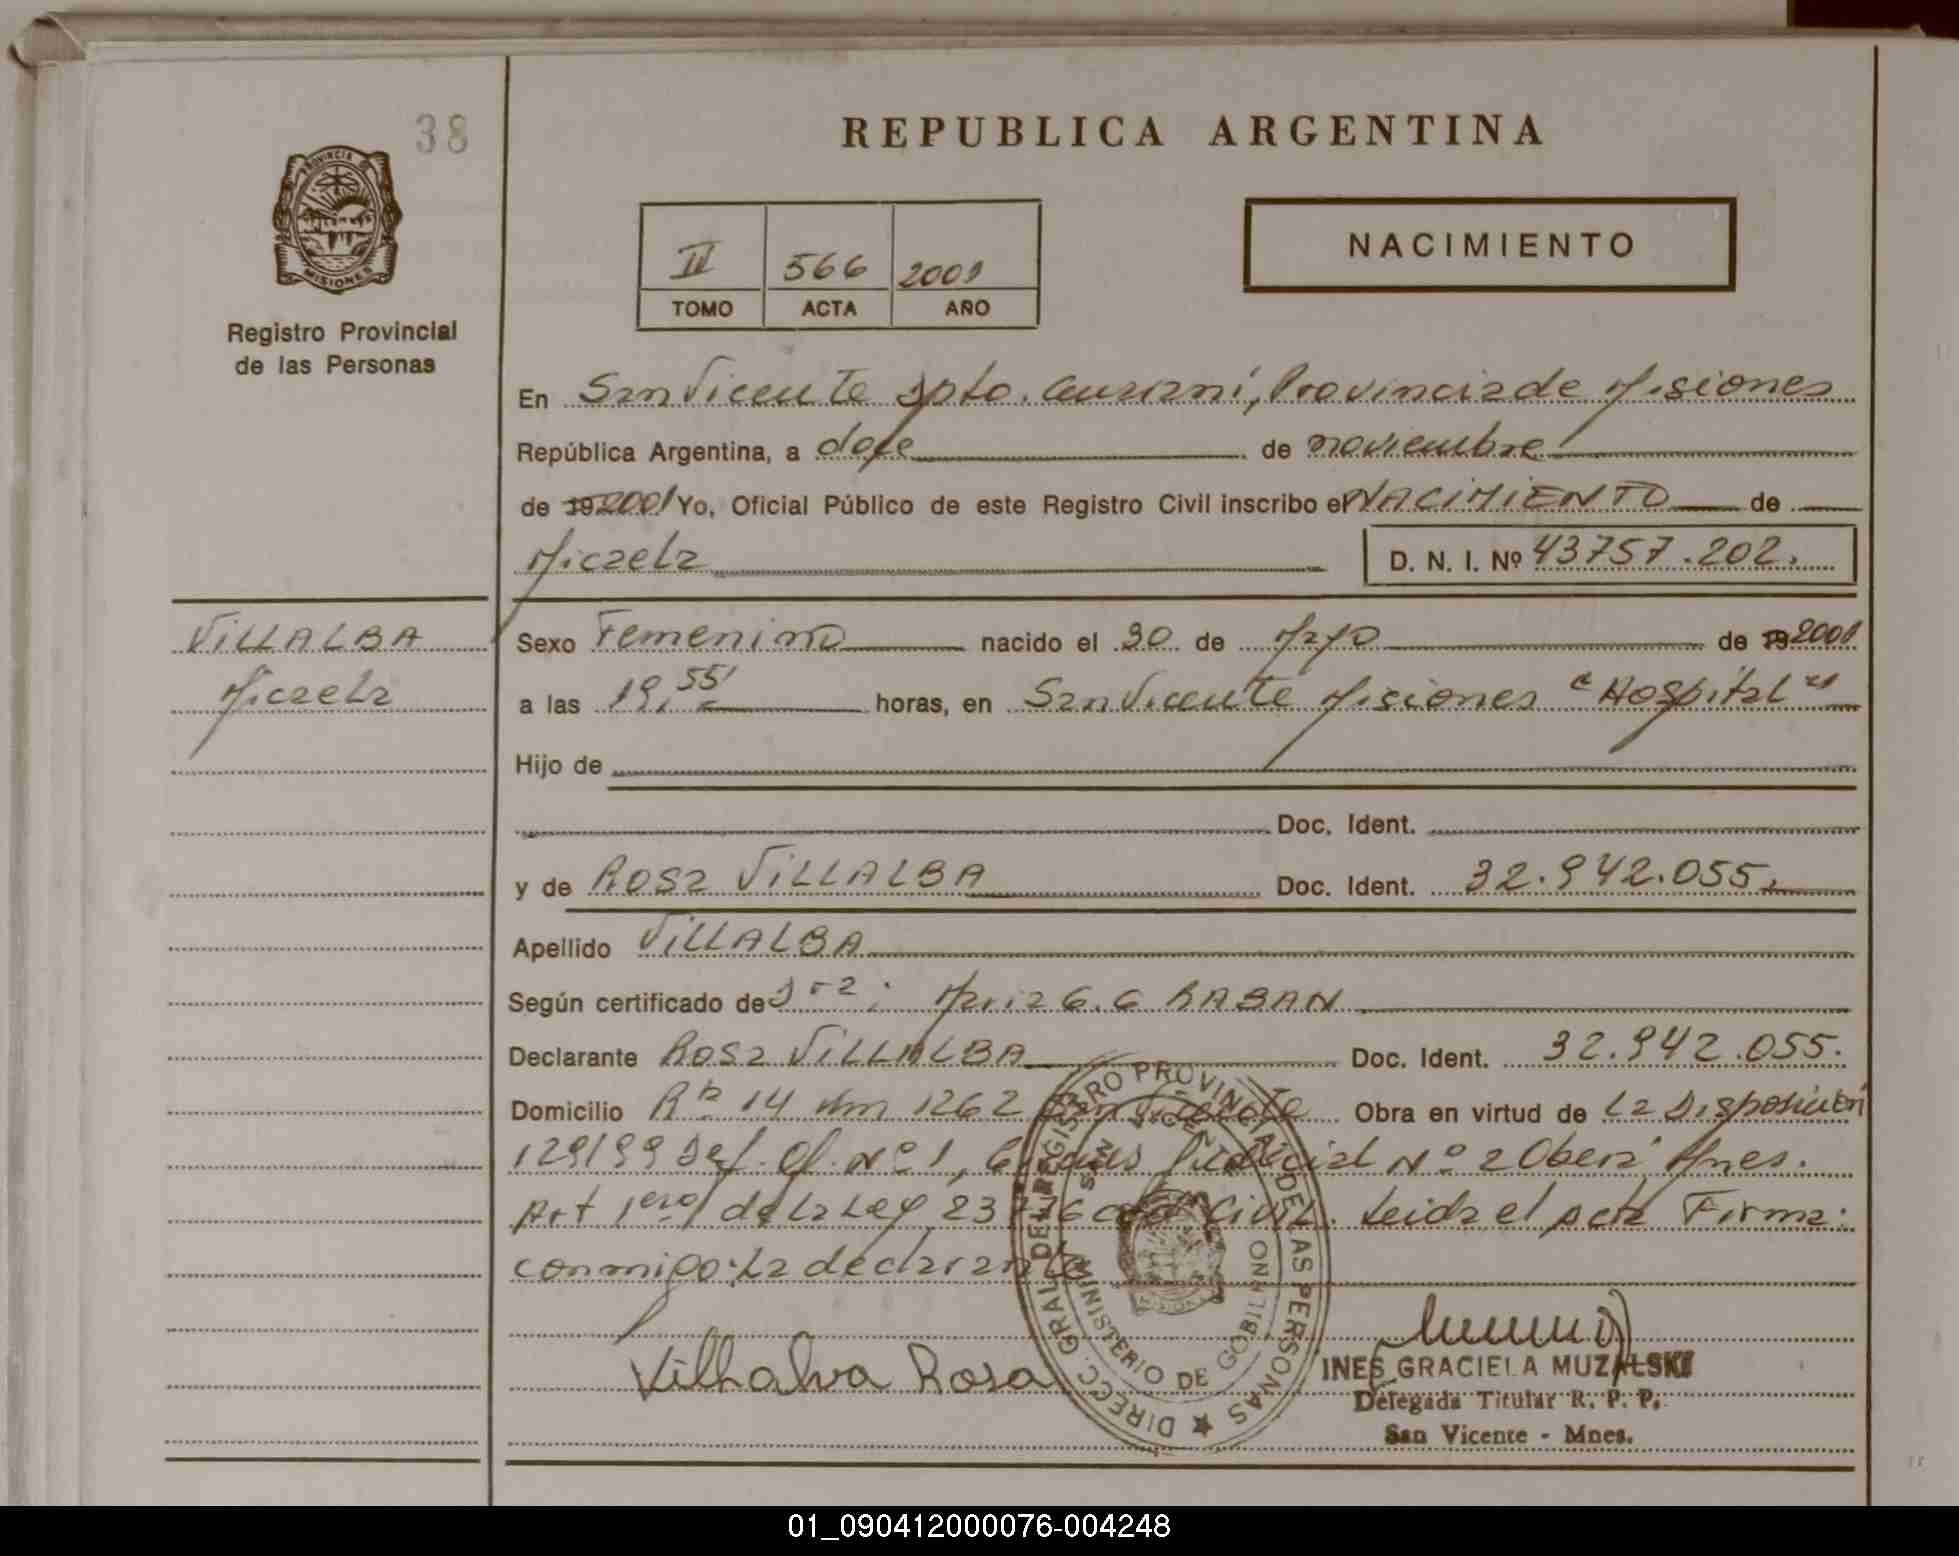 38
PROVINCIA DE
MISIONES
Registro Provincial
de las Personas
REPUBLICA ARGENTINA
II 566 2001
TOMO ACTA AÑO
NACIMIENTO
En San Vicente Dpto. Guaraní, Provincia de Misiones
República Argentina, a doce de noviembre
de 19 2001 Yo, Oficial Público de este Registro Civil inscribo el NACIMIENTO de
Micaela
D. N. I. Nº 43757.202.
VILLALBA
Micaela
Sexo Femenino nacido el 30 de Mayo de 19 2001
a las 19,55' horas, en San Vicente Misiones "Hospital"
Hijo de
Doc. Ident.
y de Rosa VILLALBA Doc. Ident. 32.942.055.
Apellido VILLALBA
Según certificado de Dra: Maria G. G RABAN
Declarante Rosa VILLALBA Doc. Ident. 32.942.055.
Domicilio Rta 14 Km 1262 San Vicente Obra en virtud de La Disposición
129/99 Def. Of. Nº 1, Circuns Judicial Nº 2 Oberá Mnes.
Art 1ero de la Ley 23776 Civil. Leida el acta Firma:
conmigo: La declarante
Villhalva Rosa
DIRECC. GRAL DEL REGISTRO PROVINCIAL DE LAS PERSONAS
SAN VICENTE
MINISTERIO DE GOBIERNO
MISIONES
INES GRACIELA MUZALSKI
Delegada Titular R. P. P.
San Vicente - Mnes.
01_090412000076-004248